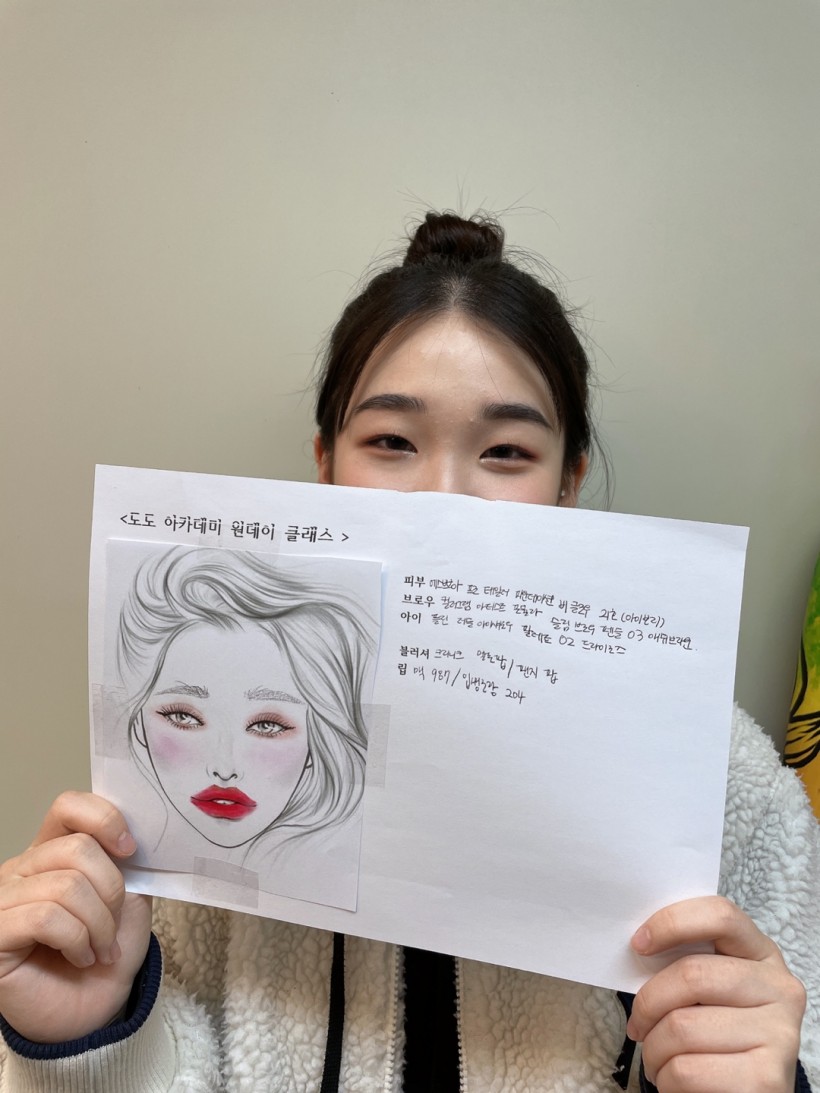 <도도 아카데미 원데이 클래스 >
피부 에스쁘아 프로 테일러 파운데이션 비 글로우 21호 (아이보리)
브로우 컬러그램 아티스트 포뮬라 슬림 브로우 펜슬 03 애쉬브라운
아이 롬앤 베러 아이섀도우 팔레트 02 드라이로즈
블러셔 크리니크 멜론팝 / 팬지 팝
립 맥 987 / 입생로랑 204